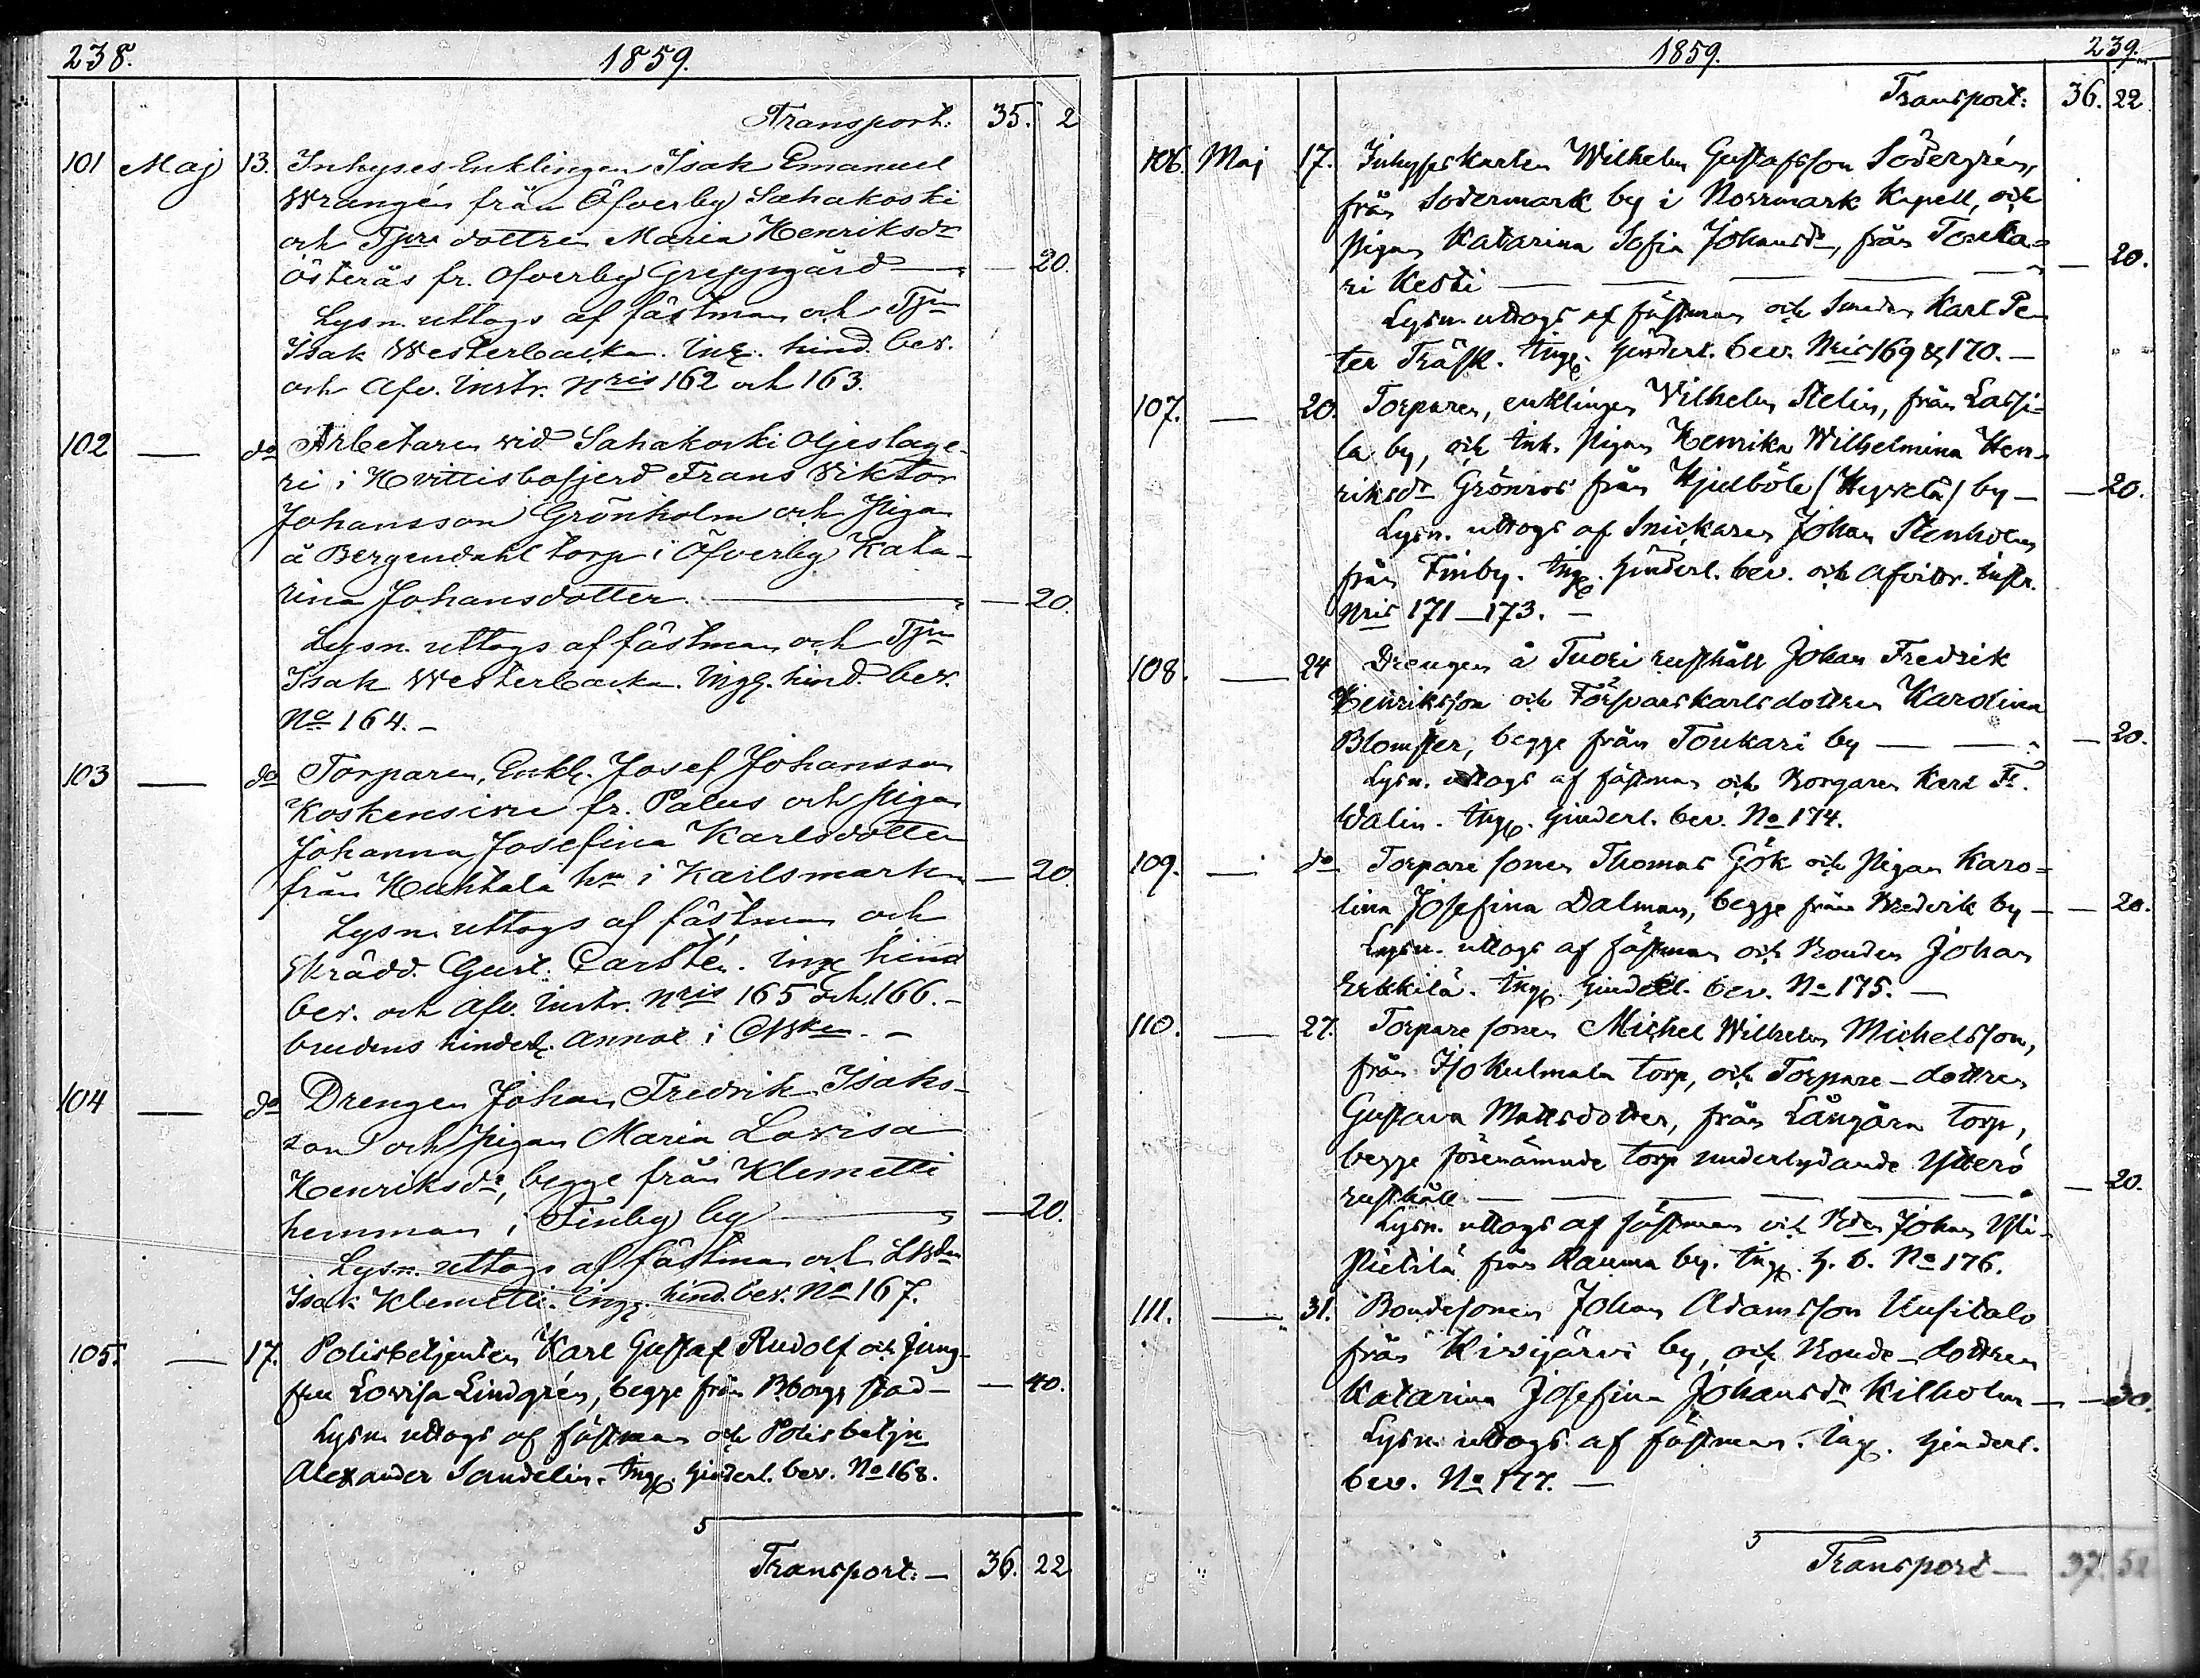 238. 1859.
Transport. 35. 2
101 Maj 13. Inhyses Enklingen Isak Emanuel
Wrangén från Öfverby Sahakoski
och Tjrs dottren Maria Henriksdr
Österås fr. Öfverby Greggård — — 20.
Lysn. uttogs af fästman och Tjrn
Isak Westerbacka. Ing. hind. bev.
och Afv. Instr. Nris 162 och 163.
102 — do Arbetaren vid Sahakoski Oljeslage-
ri i Hvittisbofjerd Frans Viktor
Johansson Grönholm och Pigan
å Bergendahl torp i Öfverby Kata-
rina Johansdotter. — — 20.
Lysn. uttogs af fästman och Tjrn
Isak Westerbacka. Ingg. hind. bev.
No 164. –
103 — do Torparen, Enkl. Josef Johansson
Koskensivu fr. Palus och Pigan
Johanna Josefina Karlsdotter
från Huhtala hn i Karlsmark — 20.
Lysn. uttogs af fästman och
Skrädd. Gust. Carstén. Ing. hind
bev. och Afv. Instr. Nris 165 och 166. –
brudens hinderl. annot i –
104 — do Drengen Johan Fredrik Isaks-
son och Pigan Maria Lovisa
Henriksdr, begge från Klemetti
hemman i Finby by — — 20.
Lysn. uttogs af fästman och
Isak Klemetti. Ingg. hind. bev. No 167.
105. — 17. Polisbetjenten Karl Gustaf Rudolf och Jung-
frun Lovisa Lindgrén, begge från Bborgs stad — — 40.
Lysn. uttogs af fästman och Polisbetjn
Alexander Sandelin. Ingg. hinderl. bev. No 168.
5
Transport. — 36. 22
1859. 239.
Transport: 36. 22
106. Maj 17. Inhyseskarlen Wilhelm Gustafsson Södergrén,
från Södermark by i Norrmark Kapell, och
Pigan Katarina Sofia Johansdr, från Touka-
ri Kesti — — — — 20.
Lysn. uttogs af fästman och Smeden Karl Pe-
ter Träsk. Ingg. hinderl. bev. Nris 169 & 170. —
107. — 20. Torparen, enklingen Wilhelm Stelin, från Lassi-
la by, och Inh. Pigan Henrika Wilhelmina Hen-
riksdr Grönros från Kjulböle (Hyvelä) by — — 20.
Lysn. uttogs af Snickaren Johan Stenholm
från Finby. Ingg. hinderl. bev. och Afvittr. Instr.
Nris 171—173. —
108. — 24 Drengen å Tuori rusthåll Johan Fredrik
Henriksson och Försvarskarlsdottren Karolina
Blomster, begge från Toukari by — — — 20.
Lysn. uttogs af fästman och Borgaren Karl Fr.
Walin. Ingg. hinderl. bev. No 174.
109. — do Torpare sonen Thomas Gök och Pigan Karo-
lina Josefina Dalman, begge från Bredvik by — — 20.
Lysn. uttogs af fästman och Bonden Johan
Erkkilä. Ingg. hinderl. bev. No 175. —
110. — 27. Torpare sonen Michel Wilhelm Michelsson,
från Isokulmala torp, och Torpare-dottren
Gustava Mattsdotter, från Långåra torp,
begge förenämnde torp underlydande Ytterö
rusthåll — — — — 20.
Lysn. uttogs af fästman och Bden Johan Yli-
Pietilä från Rauma by. Ingg. h. b. No 176.
111. — 31. Bondesonen Johan Adamsson Uusitalo
från Kivijärvi by, och Bonde-dottren
Katarina Josefina Johansdr Kilholm — — 30.
Lysn. uttogs af fästman. Ingg. hinderl.
bev. No 177. —
5
Transport — 37. 52